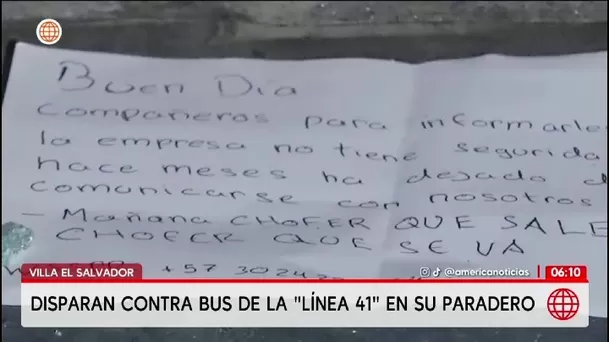 Buen Dia
compañeros para informarle
la empresa no tiene segurida
hace meses ha dejado d
comunicarse con nosotros
- Mañana CHOFER QUE SALE
CHOFER QUE SE VA
+57 302
VILLA EL SALVADOR
@americanoticias
06:10
DISPARAN CONTRA BUS DE LA "LÍNEA 41" EN SU PARADERO